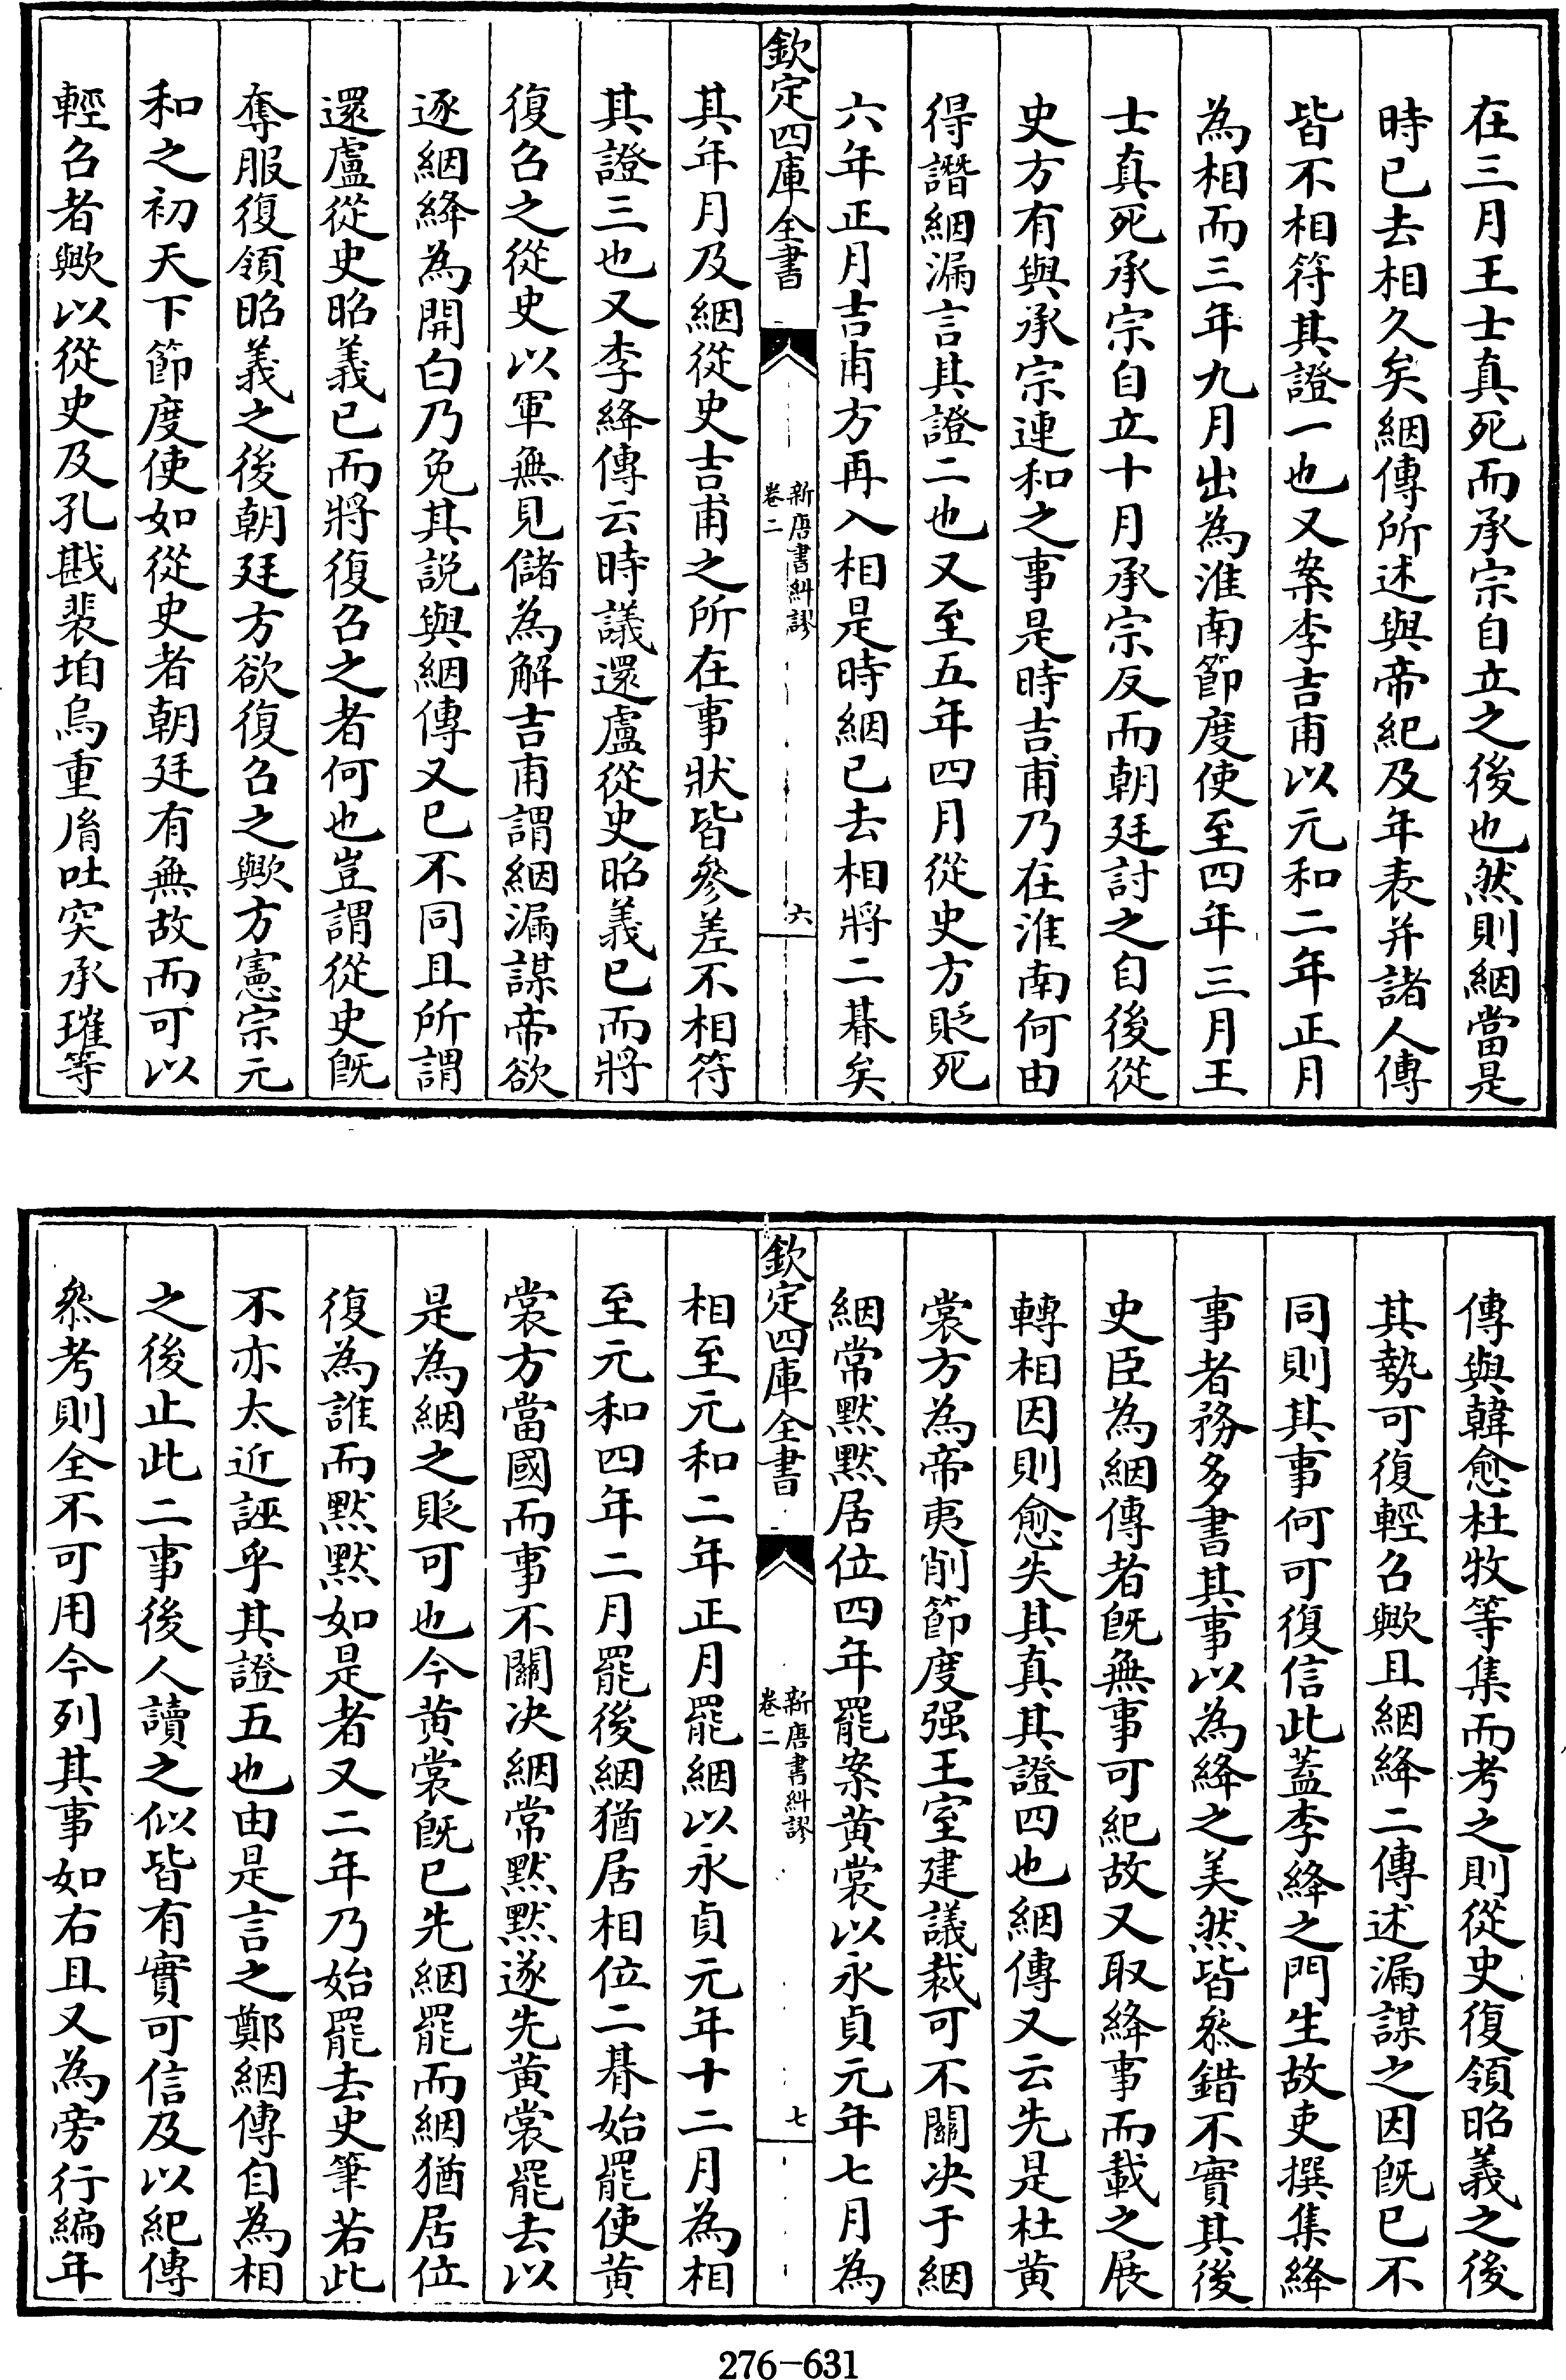 在三月王士真死而承宗自立之後也然則絪當是
時已去相久矣絪傳所述與帝紀及年表并諸人傳
皆不相符其證一也又案李吉甫以元和二年正月
為相而三年九月出為淮南節度使至四年三月王
士真死承宗自立十月承宗反而朝廷討之自後從
史方有與承宗連和之事是時吉甫乃在淮南何由
得譖絪漏言其證二也又至五年四月從史方貶死
六年正月吉甫方再入相是時絪已去相將二朞矣
欽定四庫全書
新唐書糾謬
卷二
六
其年月及絪從史吉甫之所在事狀皆參差不相符
其證三也又李絳傳云時議還盧從史昭義已而將
復召之從史以軍無見儲為解吉甫謂絪漏謀帝欲
逐絪絳為開白乃免其說與絪傳又已不同且所謂
還盧從史昭義已而將復召之者何也豈謂從史既
奪服復領昭義之後朝廷方欲復召之歟方憲宗元
和之初天下節度使如從史者朝廷有無故而可以
輕召者歟以從史及孔戡裴垍烏重胤吐突承璀等
傳與韓愈杜牧等集而考之則從史復領昭義之後
其勢可復輕召歟且絪絳二傳述漏謀之因既已不
同則其事何可復信此蓋李絳之門生故吏撰集絳
事者務多書其事以為絳之美然皆叅錯不實其後
史臣為絪傳者既無事可紀故又取絳事而載之展
轉相因則愈失其真其證四也絪傳又云先是杜黄
裳方為帝夷削節度强王室建議裁可不關决于絪
絪常黙黙居位四年罷案黄裳以永貞元年七月為
欽定四庫全書
新唐書糾謬
卷二
七
相至元和二年正月罷絪以永貞元年十二月為相
至元和四年二月罷後絪猶居相位二朞始罷使黄
裳方當國而事不關决絪常黙黙遂先黄裳罷去以
是為絪之貶可也今黄裳既已先絪罷而絪猶居位
復為誰而黙黙如是者又二年乃始罷去史筆若此
不亦太近誣乎其證五也由是言之鄭絪傳自為相
之後止此二事後人讀之似皆有實可信及以紀傳
叅考則全不可用今列其事如右且又為旁行編年
276-631